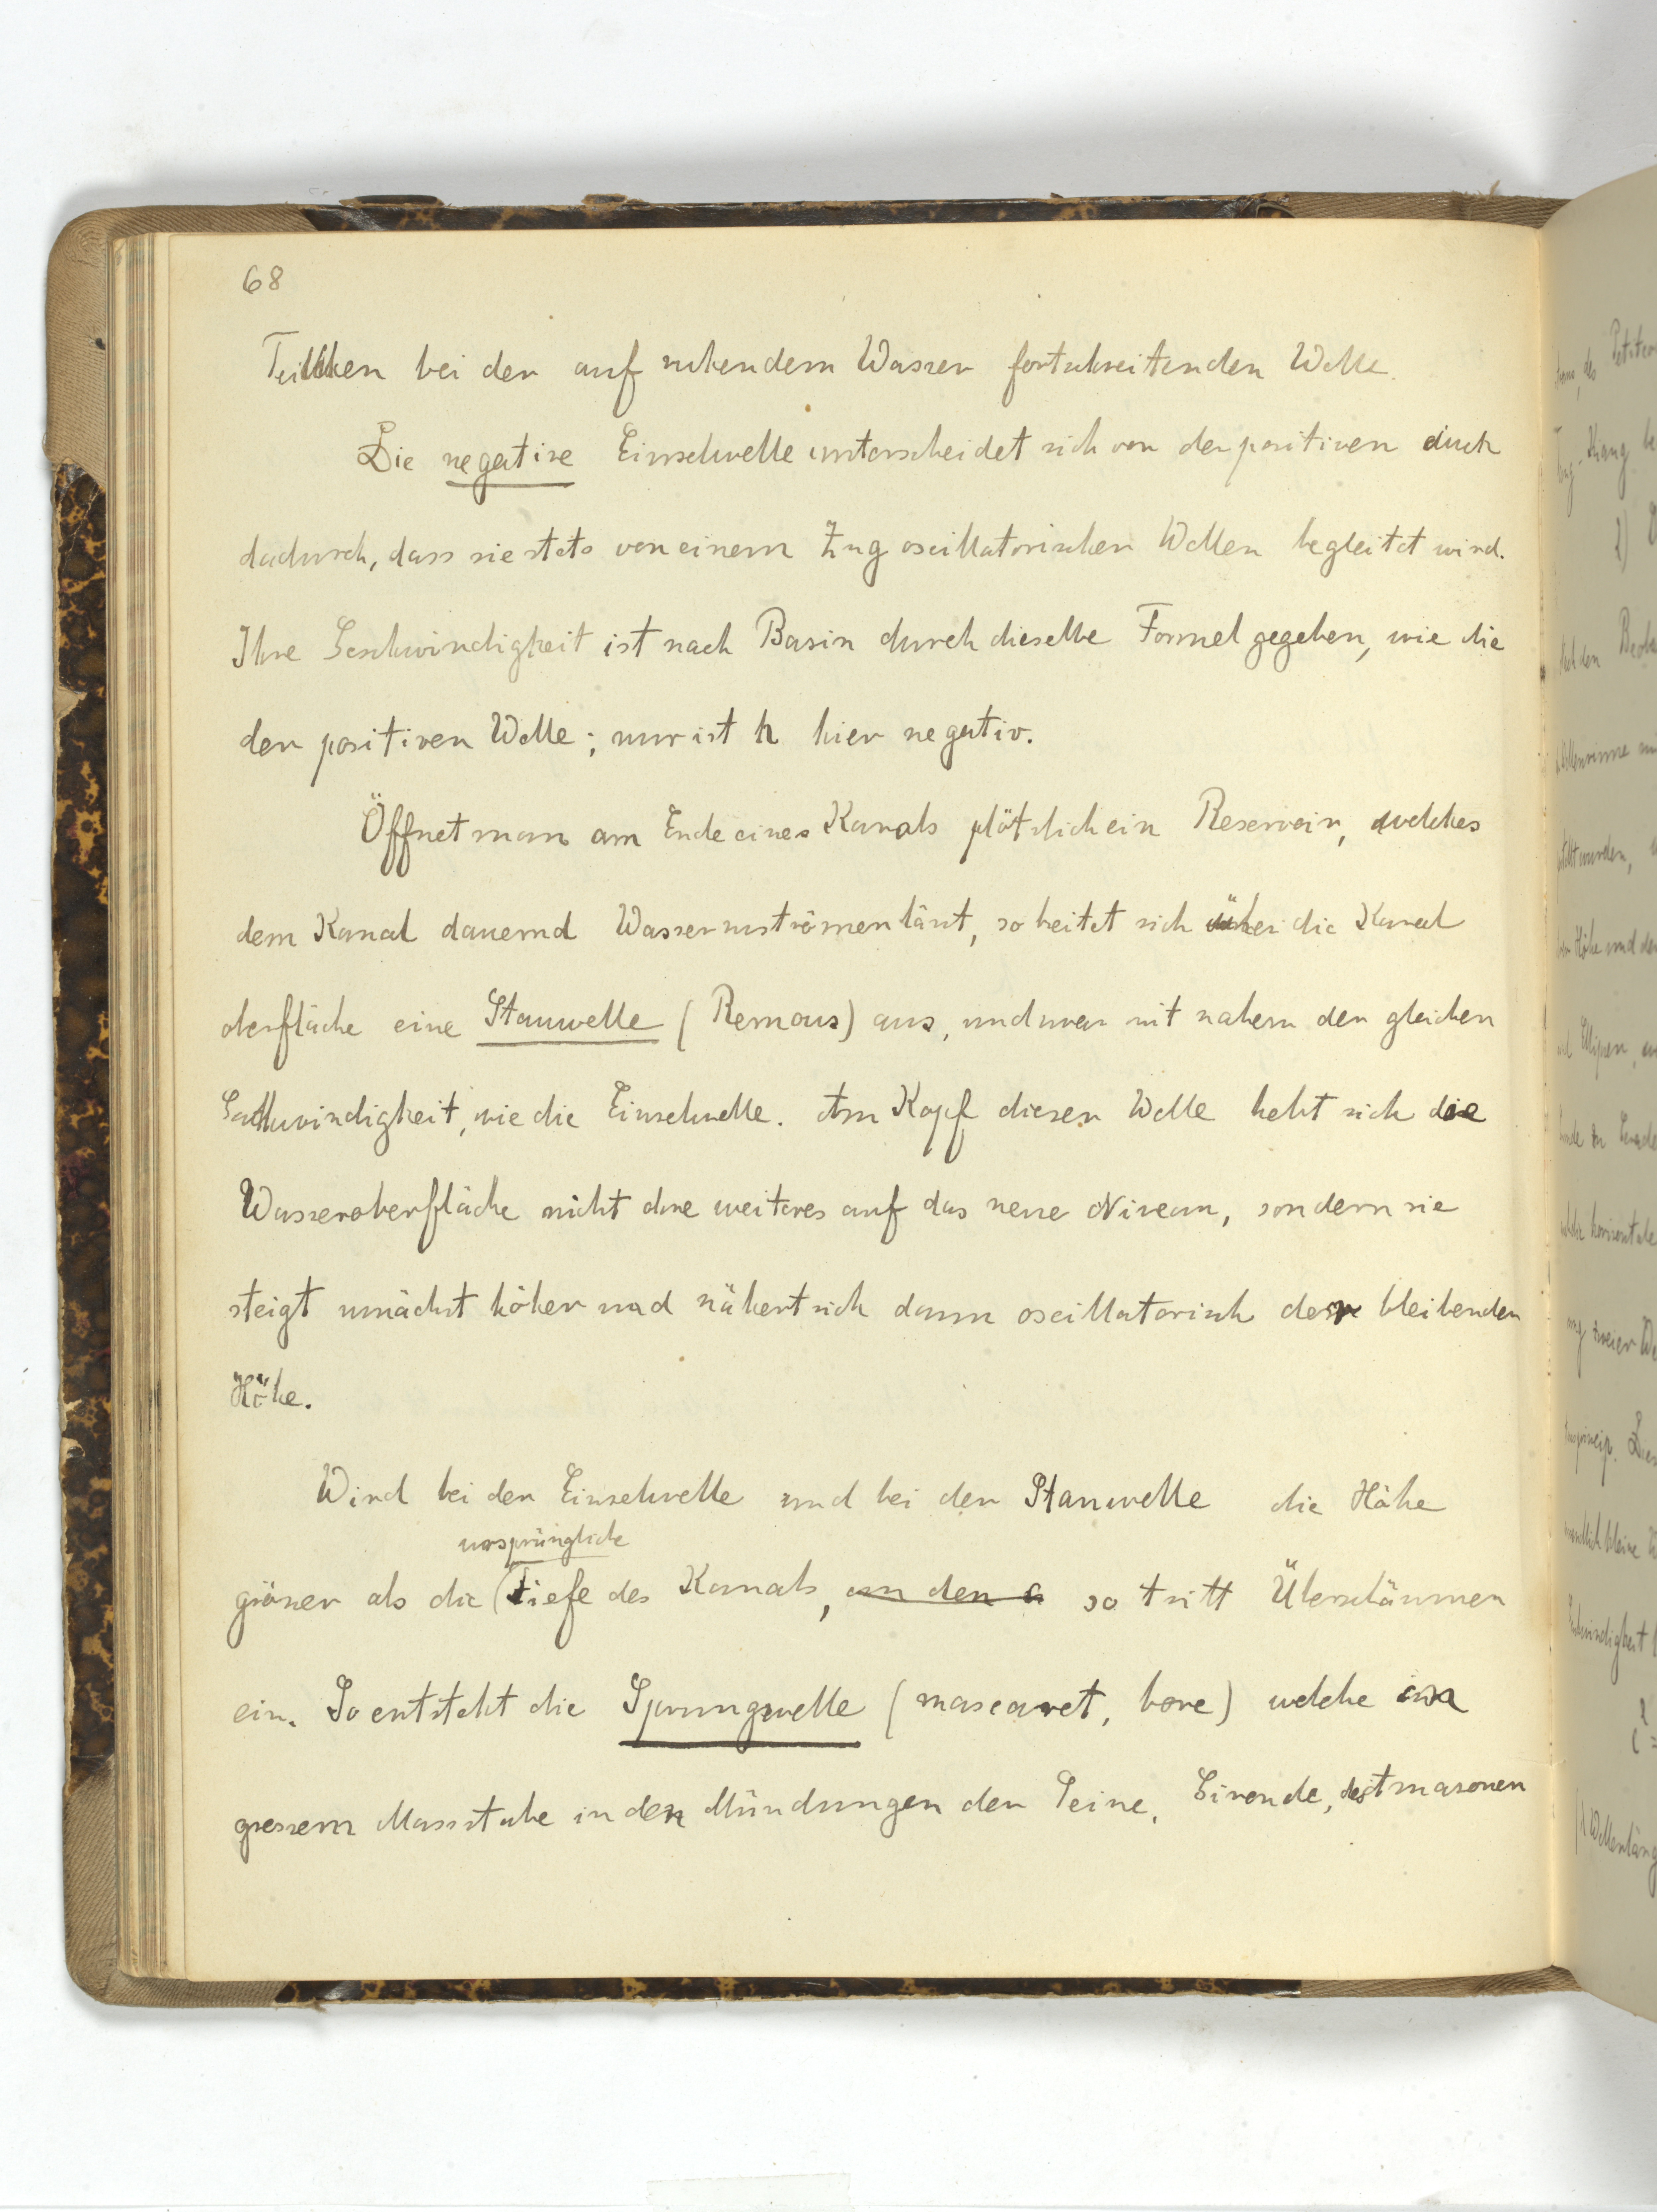 68
Teilchen bei der auf ruhendem Wasser fortschreitenden Welle.
Die negative Einzelwelle unterscheidet sich von der positiven durch
dadurch, dass sie stets von einem Zug oscillatorischer Wellen begleitet wird.
Ihre Geschwindigkeit ist nach Basin durch dieselbe Formel gegeben, wie die
der positiven Welle; nur ist h hier negativ.
Öffnet man am Ende eines Kanals plötzlich ein Reservoir, welches
dem Kanal dauernd Wasser zuströmen lässt, so breitet sich über die Kanal
oberfläche eine Stauwelle (Remous) aus, und zwar mit nahezu der gleichen
Geschwindigkeit, wie die Einzelwelle. Am Kopf dieser Welle hebt sich die
Wasseroberfläche nicht ohne weiteres auf das neue Niveau, sondern sie
steigt zunächst höher und nähert sich dann oscillatorisch der bleibenden
Höhe.
Wird bei der Einzelwelle und bei der Stauwelle die Höhe
ursprüngliche
grösser als die Tiefe des Kanals, an den so tritt Überschäumen
ein. So entsteht die Sprungwelle (mascaret, bore) welche in
grossem Massstabe in den Mündungen der Seine, Gironde, des Amazonen